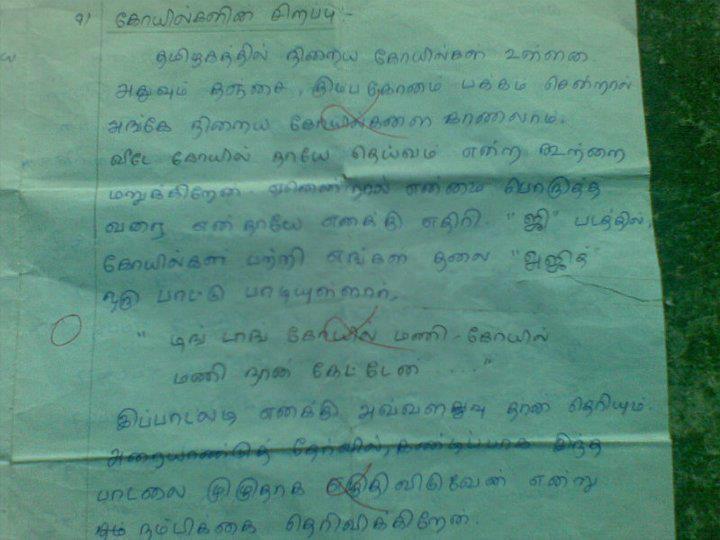 9) கோயில்களின் சிறப்பு :-
தமிழகத்தில் நிறைய கோயில்கள் உள்ளன
அதுவும் தஞ்சை, கும்பகோணம் பக்கம் சென்றால்
அங்கே நிறைய கோயில்களை காணலாம்.
வீடே கோயில் தாயே தெய்வம் என்ற கூற்றை
மறுக்கிறேன் ஏனென்றால் என்னை பொறுத்த
வரை என் தாயே எனக்கு எதிரி. "ஜி" படத்தில்,
கோயில்கள் பற்றி எங்கள் தலை "அஜித்"
ஒரு பாட்டு பாடியுள்ளார்.
" டிங் டாங் கோயில் மணி - கோயில்
மணி நான் கேட்டேன் ...."
இப்பாடலடி எனக்கு அவ்வளவு தான் தெரியும்.
அரையாண்டுத் தேர்வில், கண்டிப்பாக இந்த
பாடலை முழுதாக எழுதி விடுவேன் என்று
நம்பிக்கை தெரிவிக்கிறேன்.